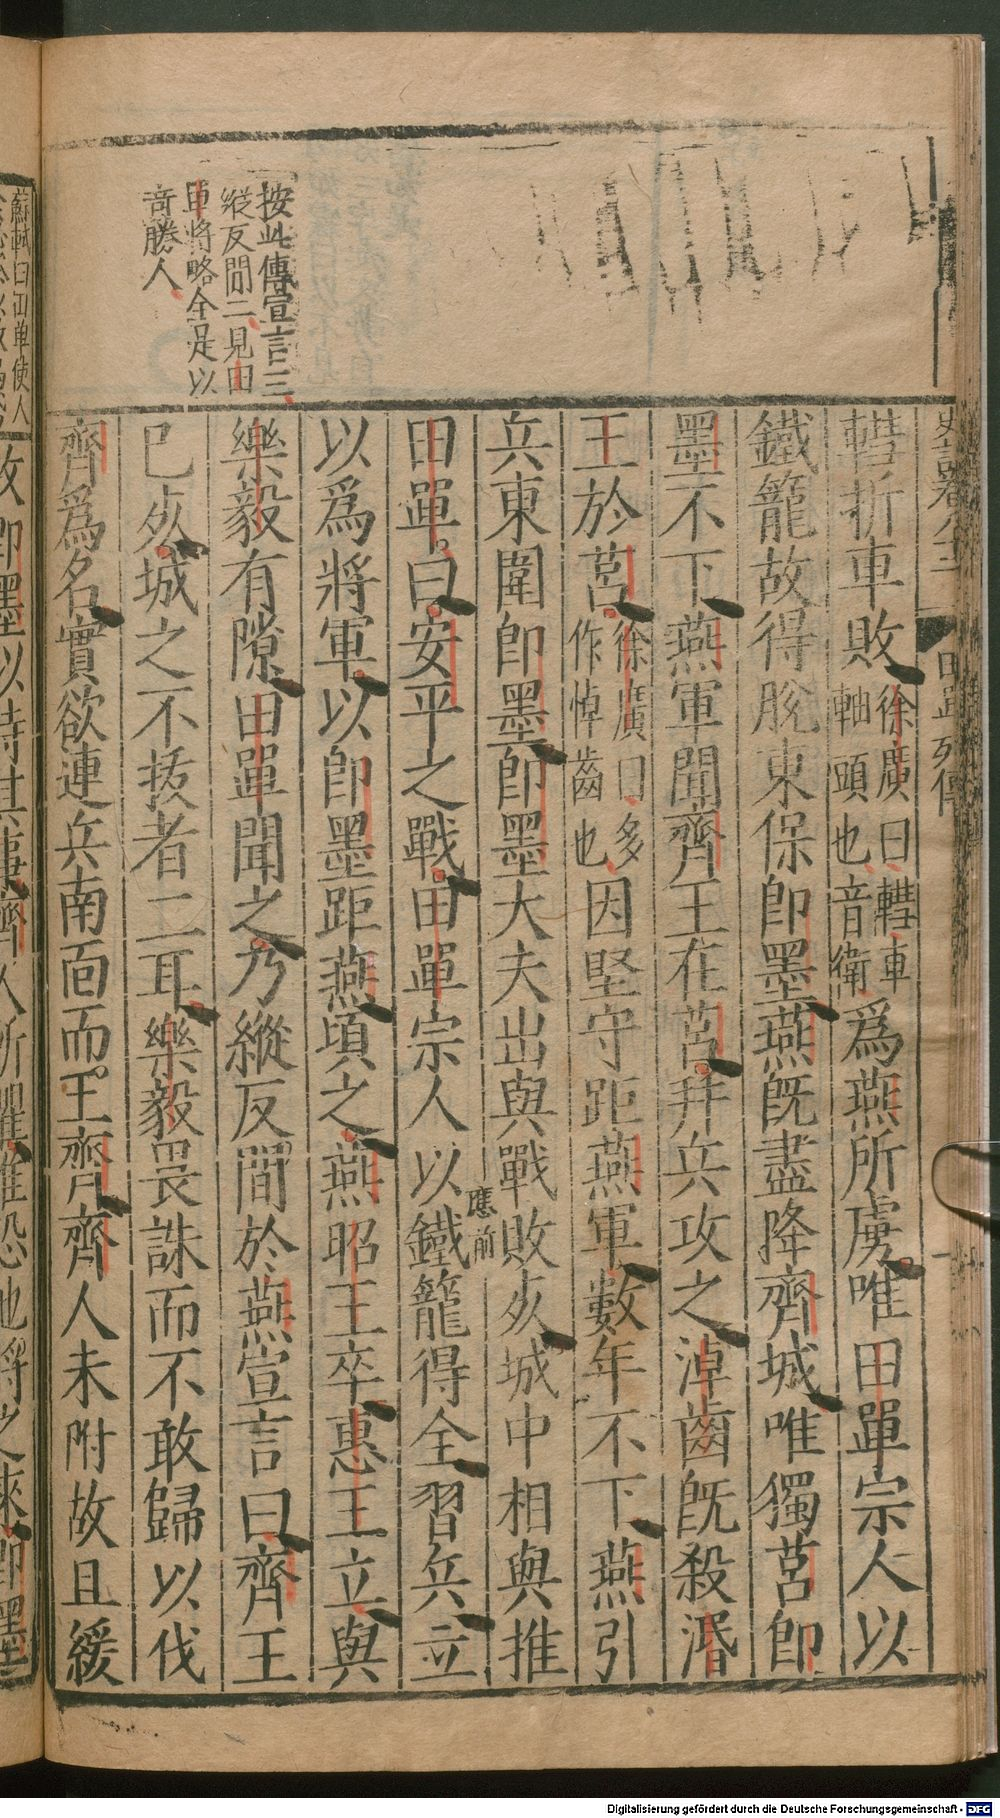 史記卷八十二 田單列傳
轊折車敗徐廣曰轊車軸頭也音衛爲燕所虜唯田單宗人以
鐵籠故得脫東保卽墨燕旣盡降齊城唯獨莒卽
墨不下燕軍聞齊王在莒幷兵攻之淖齒旣殺湣
王於莒徐廣曰多作悼齒也因堅守距燕軍數年不下燕引
兵東圍卽墨卽墨大夫出與戰敗死城中相與推
田單曰安平之戰田單宗人以鐵籠得全習兵立
應前
以爲將軍以卽墨距燕頃之燕昭王卒惠王立與
樂毅有隙田單聞之乃縱反間於燕宣言曰齊王
已死城之不拔者二耳樂毅畏誅而不敢歸以伐
齊爲名實欲連兵南面而王齊齊人未附故且緩
按此傳宣言三
縱反間二見田
單將略全是以
奇勝人
攻卽墨以待其事齊人所懼唯恐他將之來卽墨
蘇軾曰田單使人
Digitalisierung gefördert durch die Deutsche Forschungsgemeinschaft - DFG